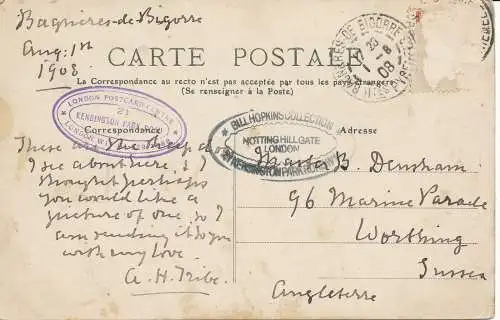 Bagnères-de-Bigorre
Aug: 1st
1908
CARTE POSTALE
La Correspondance au recto n'est pas acceptée par tous les pays étrangers
(Se renseigner à la Poste)
Correspondance
Adresse
LONDON POSTCARD CENTRE
21
KENSINGTON PARK ROAD
LONDON
BILL HOPKINS COLLECTION
NOTTING HILL GATE
LONDON
KENSINGTON PARK ROAD
BAGNERES DE BIGORRE
1 - 8
08
These are the sheep
I see about here, & I
thought perhaps
you would like a
picture of one, so I
am sending it to you
with my love.
A. H. Tribe.
Master B. Densham
96 Marine Parade
Worthing
Sussex
Angleterre